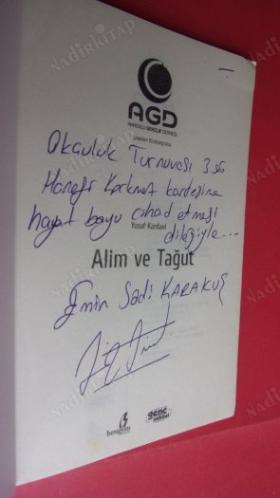 AGD
ANADOLU GENÇLİK DERNEĞİ
Okçuluk Turnuvası 3.sü
Hanefi Korkmaz kardeşime
hayat boyu cihad etmesi
dileğiyle...
Yusuf Kardavi
Alim ve Tağut
Emin Sadi KARAKUŞ
genç
NadirKitap